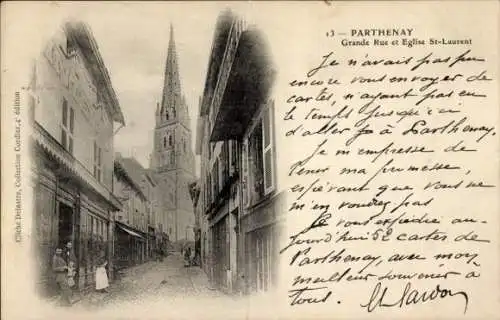 13 - PARTHENAY
Grande Rue et Eglise St-Laurent
Je n'avais pas pu
encore vous envoyer de
cartes, n'ayant pas eu
le temps jusqu'ici
d'aller à Parthenay.
Je m'empresse de
tenir ma promesse,
espérant que vous ne
m'en voudrez pas.
Je vous expédie au-
jourd'hui 52 cartes de
Parthenay, avec mon
meilleur souvenir à
tous,
Cliché Delaatre, Collection Cordier, 4e édition